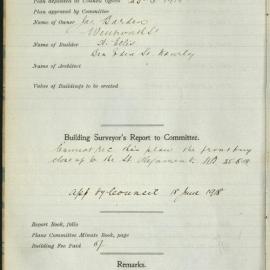 Plan deposited at Council Offices
Plan approved by Committee
Name of Owner Jas Barden
Wentworth St
Name of Builder A. Ellis
Name of Architect
Value of Buildings to be erected
Building Surveyor's Report to Committee.
Cannot rec this plan the front being
close up to the St Alignment
App by Council 18 June 1918
Report Book, folio
Plans Committee Minute Book, page
Building Fee Paid
Remarks.